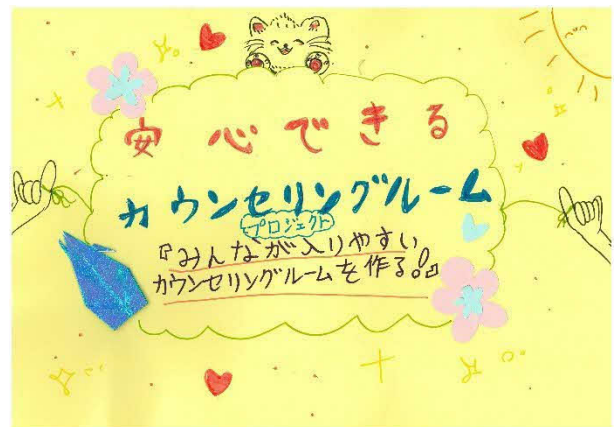 安心できる
カウンセリングルーム
プロジェクト
『みんなが入りやすい
カウンセリングルームを作る!!』